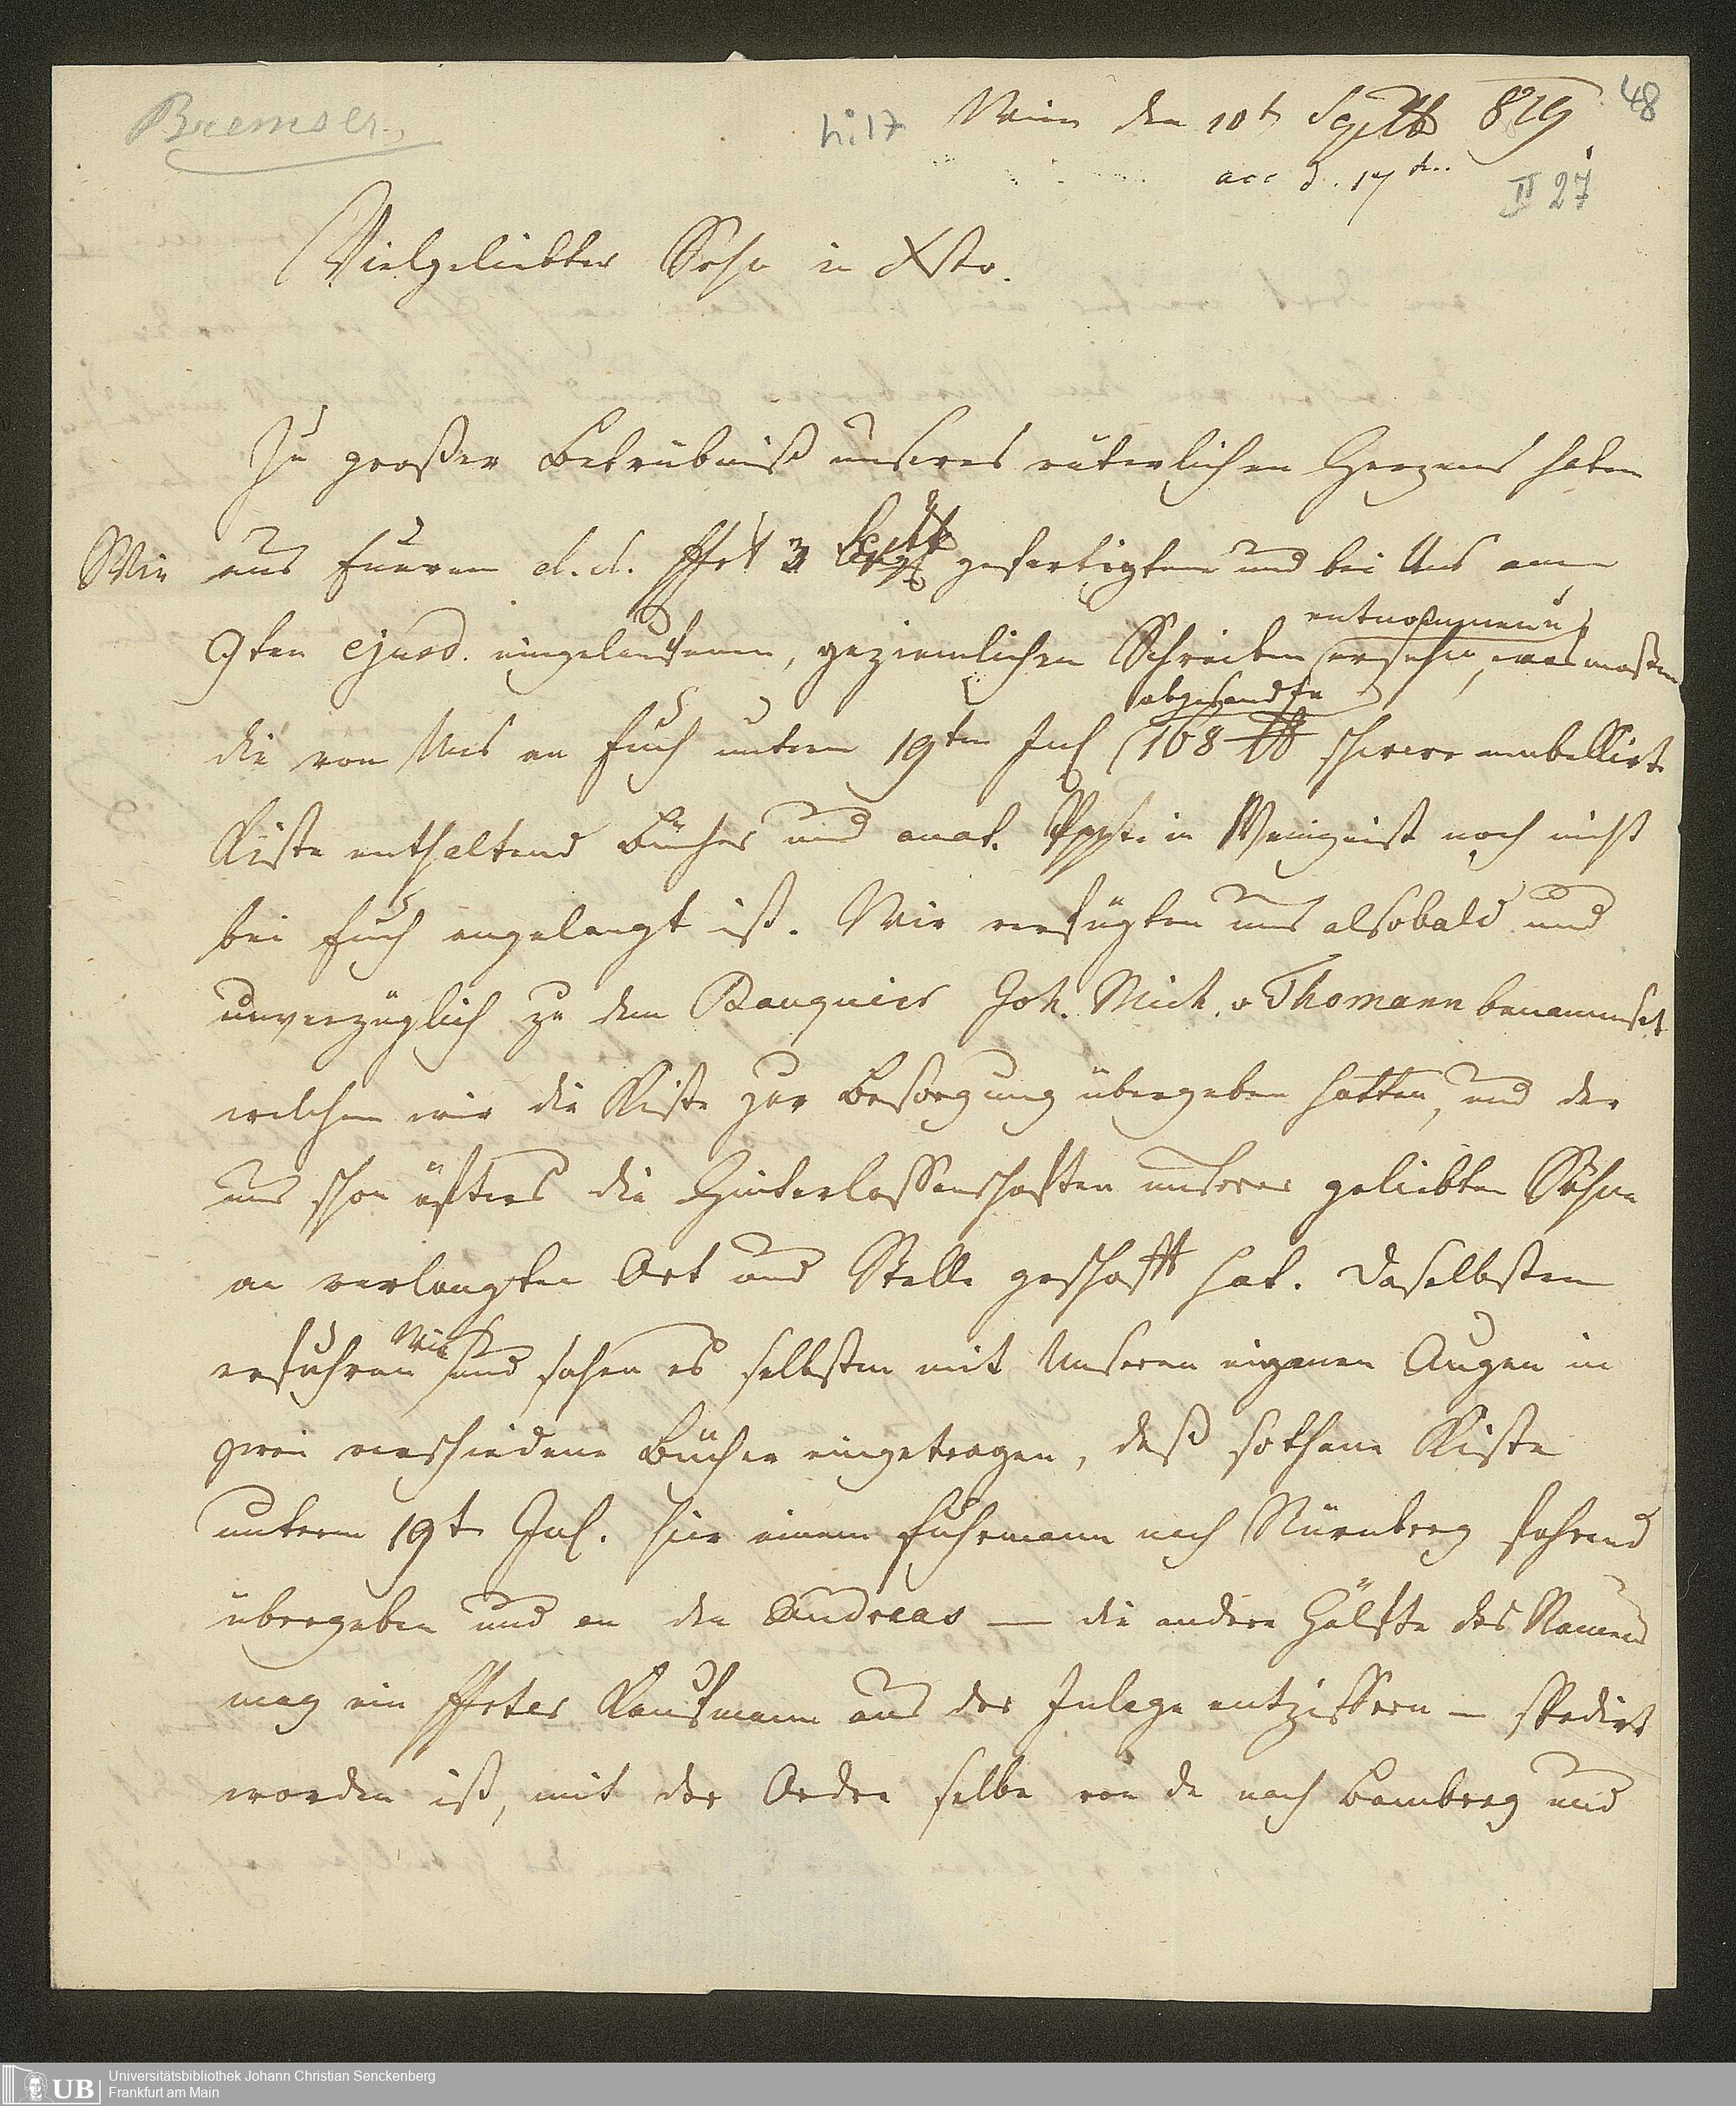 Bremser.
h: 17
Wien den 10t Septb 819
48
acc d. 17ten
II 27
Vielgeliebter Sohn in Xsto.
Zu großer Betrübniß unseres väterlichen Herzens haben
Wir aus Eurem d. d. Ffrt 3 Septb gefertigten und bei Uns am
9ten ejusd. eingelaufenen, geziemlichen Schreiben ersehn, entnommen, was maßen
die von Uns an Euch unterm 19ten Jul abgesandte 168 ℔ schwere emballirte
Kiste enthaltend Bücher und anat. Ppste in Weingeist noch nicht
bei Euch angelangt ist. Wir verfügten uns alsobald und
unverzüglich zu dem Banquier Joh. Mich. v Thomann benamset
welchem wir die Kiste zur Besorgung übergeben hatten, und der
uns schon öfters die Hinterlassenschaften unserer geliebten Söhne
an verlangten Ort und Stelle geschafft hat. Daselbsten
erfuhren Wir und sahen es selbsten mit Unseren eigenen Augen in
zwei verschiedene Bücher eingetragen, daß sothane Kiste
unterm 19t Jul. hier einem Fuhrmann nach Nürnberg fahrend
übergeben und an den Andreas — die andere Hälfte des Namens
mag ein Ffrter Kaufmann aus der Inlage entziffern — spedirt
worden ist, mit der Ordre selbe von da nach Bamberg und
UB
Universitätsbibliothek Johann Christian Senckenberg
Frankfurt am Main